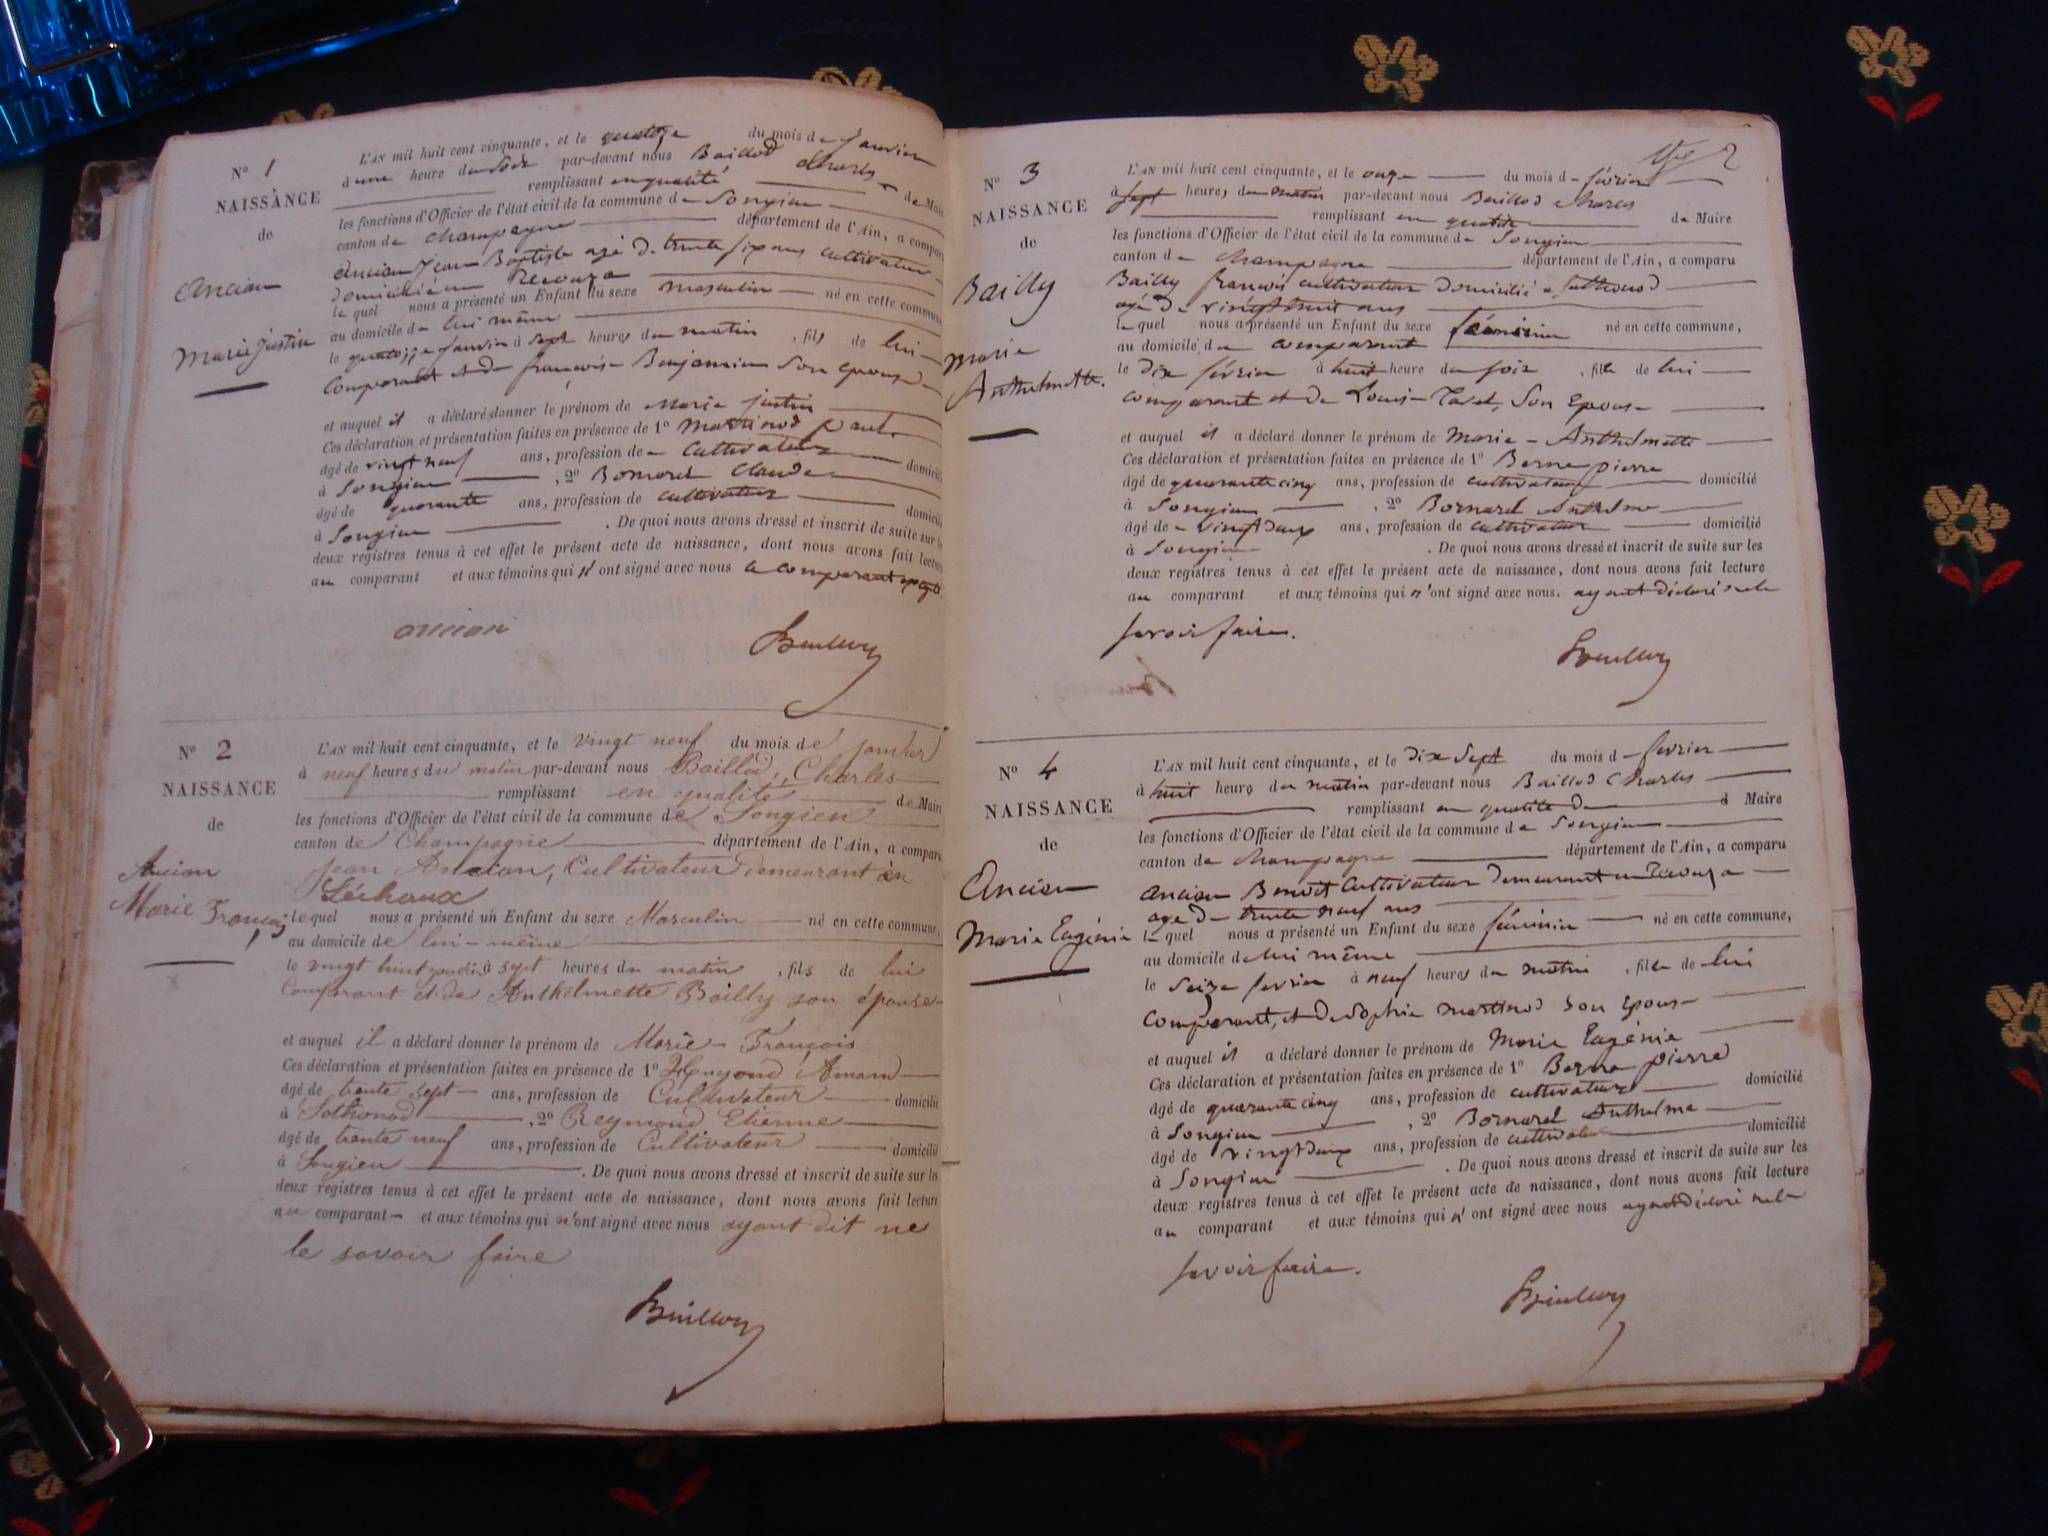 N° 1
NAISSANCE
de
Ancian
Marie Justin
L'AN mil huit cent cinquante, et le quatorze du mois de janvier
à une heure du soir par-devant nous Baillod Charles
remplissant en qualité de Maire
les fonctions d'Officier de l'état civil de la commune de Songieu
canton de Champagne département de l'Ain, a comparu
Ancian Jean Baptiste agé de trente six ans cultivateur
domicilié en
le quel nous a présenté un Enfant du sexe masculin né en cette commune
au domicile de lui même
le quatorze janvier à sept heures du matin, fils de lui
comparant et de françoise Benjamine Son epouse
et auquel il a déclaré donner le prénom de Marie justin
Ces déclaration et présentation faites en présence de 1° Martinod paul
âgé de vingt neuf ans, profession de Cultivateur domicilié
à Songieu, 2° Bornarel Claude
âgé de quarante ans, profession de cultivateur domicilié
à Songieu. De quoi nous avons dressé et inscrit de suite sur les
deux registres tenus à cet effet le présent acte de naissance, dont nous avons fait lecture
au comparant et aux témoins qui n'ont signé avec nous le comparant excepté.
ancian
N° 2
NAISSANCE
de
Ancian
Marie François
L'AN mil huit cent cinquante, et le vingt neuf du mois de janvier
à neuf heures du matin par-devant nous Baillod, Charles
remplissant en qualité de Maire
les fonctions d'Officier de l'état civil de la commune de Songieu
canton de Champagne département de l'Ain, a comparu
Jean Ancian, Cultivateur Demeurant en
Léchaux
lequel nous a présenté un Enfant du sexe Masculin né en cette commune,
au domicile de lui-même
le vingt huit janvier à sept heures du matin, fils de lui
Comparant et de Anthelmette Bailly son épouse
et auquel il a déclaré donner le prénom de Marie-François
Ces déclaration et présentation faites en présence de 1° Amand
âgé de trente sept ans, profession de Cultivateur domicilié
à Sothonod, 2° Reymond Etienne
âgé de trente neuf ans, profession de Cultivateur domicilié
à Songieu. De quoi nous avons dressé et inscrit de suite sur les
deux registres tenus à cet effet le présent acte de naissance, dont nous avons fait lecture
au comparant et aux témoins qui n'ont signé avec nous ayant dit ne
le savoir faire
2
N° 3
NAISSANCE
de
Bailly
Marie
Anthelmette.
L'AN mil huit cent cinquante, et le onze du mois de février
à sept heures du matin par-devant nous Baillod Charles
remplissant en qualité de Maire
les fonctions d'Officier de l'état civil de la commune de Songieu
canton de Champagne département de l'Ain, a comparu
Bailly françois cultivateur domicilié a Sothonod
agé de vingt huit ans
le quel nous a présenté un Enfant du sexe féminin né en cette commune,
au domicile du comparant
le dix février à huit heure du soir, fille de lui
comparant et de Louise Tavel, Son Epouse
et auquel il a déclaré donner le prénom de Marie-Anthelmette
Ces déclaration et présentation faites en présence de 1° Berne pierre
âgé de quarante cinq ans, profession de cultivateur domicilié
à Songieu, 2° Bornarel Anthelme
âgé de vingt deux ans, profession de cultivateur domicilié
à Songieu. De quoi nous avons dressé et inscrit de suite sur les
deux registres tenus à cet effet le présent acte de naissance, dont nous avons fait lecture
au comparant et aux témoins qui n'ont signé avec nous. ayant déclaré ne le
savoir faire.
N° 4
NAISSANCE
de
Ancian
Marie Eugénie
L'AN mil huit cent cinquante, et le dix Sept du mois de fevrier
à huit heure du matin par-devant nous Baillod Charles
remplissant en qualité de d Maire
les fonctions d'Officier de l'état civil de la commune de Songieu
canton de Champagne département de l'Ain, a comparu
Ancian Benoit Cultivateur Demeurant en
agé de trente neuf ans
le quel nous a présenté un Enfant du sexe féminin né en cette commune,
au domicile de lui même
le Seize fevrier à neuf heures du matin, fille de lui
Comparant, et de Sophie martinod Son Epouse
et auquel il a déclaré donner le prénom de Marie Eugénie
Ces déclaration et présentation faites en présence de 1° Berne pierre
âgé de quarante cinq ans, profession de cultivateur domicilié
à Songieu, 2° Bornarel Anthelme
âgé de vingt deux ans, profession de cultivateur domicilié
à Songieu. De quoi nous avons dressé et inscrit de suite sur les
deux registres tenus à cet effet le présent acte de naissance, dont nous avons fait lecture
au comparant et aux témoins qui n'ont signé avec nous ayant déclaré ne le
savoir faire.